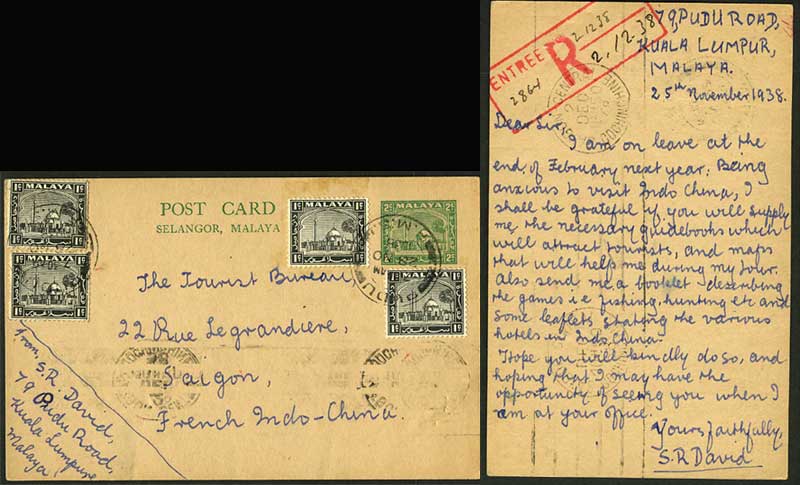 MALAYA
1c 1c
MALAYA
1c 1c
POST CARD
SELANGOR, MALAYA
MALAYA
1c 1c
MALAYA
2c 2c
MALAYA
1c 1c
PUDU
The Tourist Bureau,
22 Rue Legrandiere,
Saigon,
French Indo-China.
From, S.R. David,
79 Pudu Road,
Kuala Lumpur
Malaya.
ENTREE
R
2.12.38
2./2.38
2864
79, PUDU ROAD,
KUALA LUMPUR,
MALAYA.
25th November 1938.
Dear Sir,
I am on leave at the
end of February next year. Being
anxious to visit Indo China, I
shall be grateful if you will supply
me the necessary guidebooks which
will attract tourists, and maps
that will help me during my tour.
Also send me a booklet describing
the games i.e fishing, hunting etc and
some leaflets stating the various
hotels in Indo China.
Hope you will kindly do so, and
hoping that I may have the
opportunity of seeing you when I
am at your office.
Yours faithfully,
S.R David